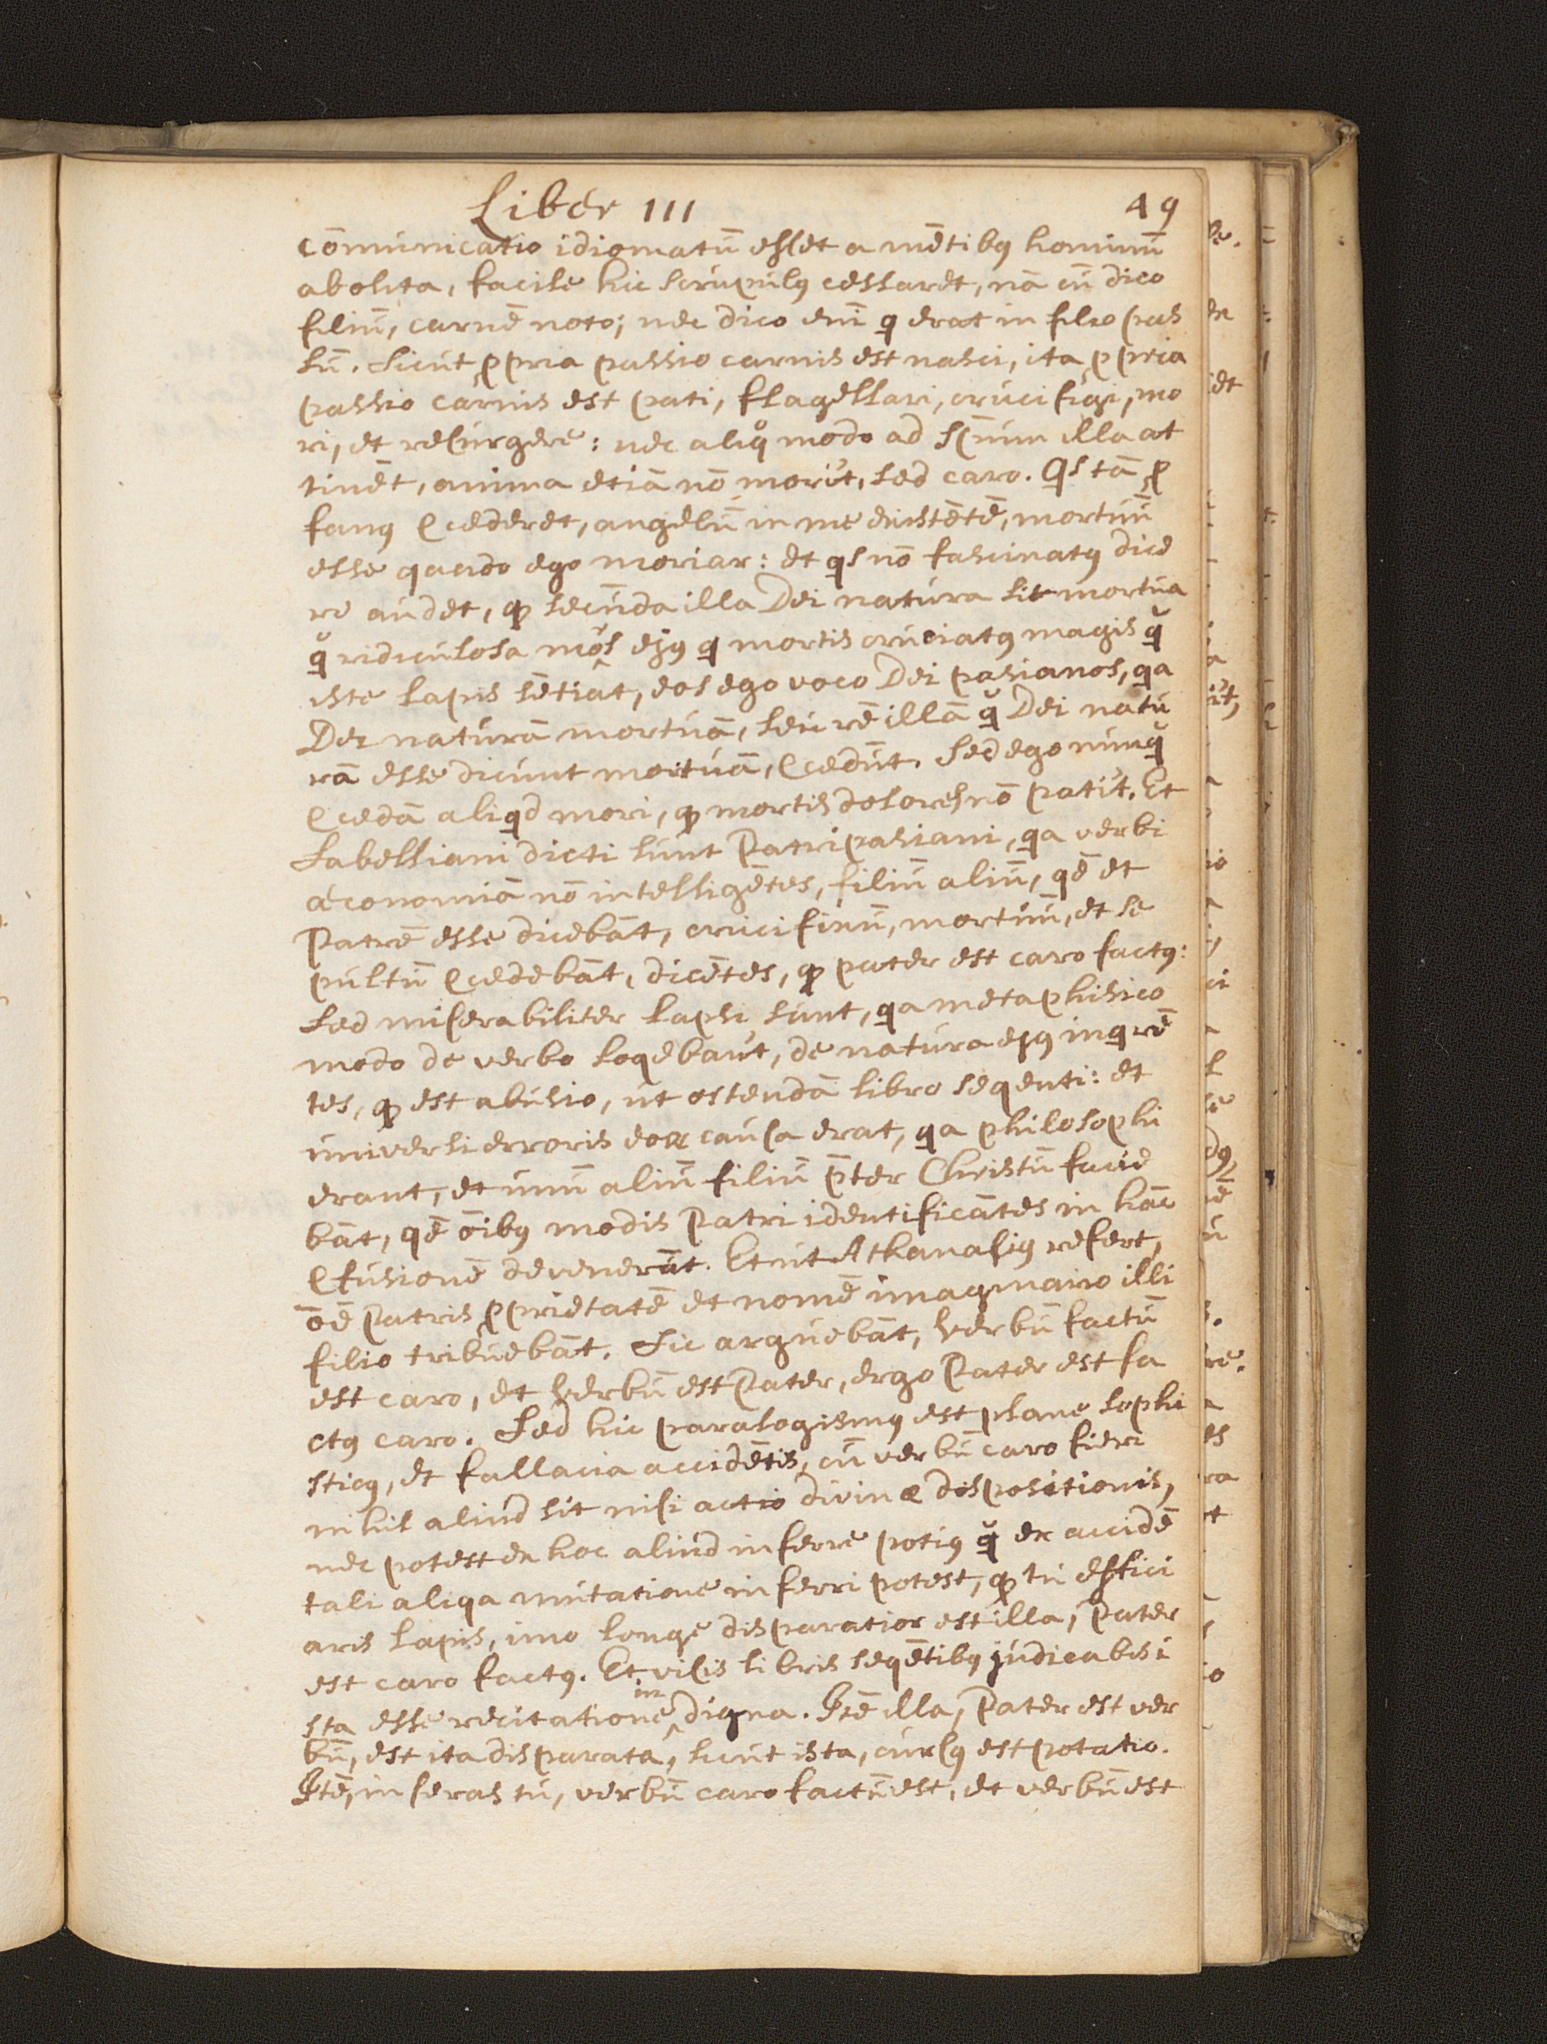 Liber III 49
cōmunicatio idiomatū esset a mētibꝰ hominū
abolita, facile hic scrupulꝰ cessaret, nā cū dico
filiū, carnē noto; nec dico enī q̄ erat in filio pas
sū. Sicut ꝓpria passio carnis est nasci, ita ꝓpria
passio carnis est pati, flagellari, crucifigi, mo
ri, et resurgere: nec aliq̊ modo ad sp̄um illa at
tinēt, anima etiā nō morit᷑, sed caro. Qs tā ꝓ
fanꝰ ꝯcederet, angelū in me existētē, mortuū
esse quādo ego moriar: et qs nō fascinatꝰ dice
re audet, ꝙ secūda illa Dei natura sit mortua
q̄ ridiculosa mōs ejꝰ q̄ mortis cruciatꝰ magis q̄
iste lapis sētiat, eos ego voco Dei pasianos, qa
Dei naturā mortuā, seu rē illā q̄ Dei natu
rā esse dicunt mortuā, ꝯcedūt. Sed ego nunq̄
ꝯcedā aliqd mori, ꝙ mortis dolores nō patit᷑. Et
Sabelliani dicti sunt Patripasiani, qa verbi
œconomiā nō intelligētes, filiū aliū, quē et
Patrē esse dicebāt, crucifixū, mortuū, et se
pultū ꝯcedebāt, dicētes, ꝙ pater est caro factꝰ:
Sed miserabiliter lapsi sunt, qa metaphisico
modo de verbo loqebant᷑, de natura ejꝰ inqrē
tes, ꝙ est abusio, ut ostendā libro seqenti: et
universi erroris eoꝝ causa erat, qa philosophi
erant, et unū aliū filiū p̄ter Christū facie
bāt, quē ōibꝰ modis Patri identificātes in hāc
ꝯfusionē devenerūt. Et ut Athanasiꝰ refert,
ōē Patris ꝓprietatē et nomē imaginario illi
filio tribuebāt. Sic arguebāt, Verbū factū
est caro, et Verbū est Pater, ergo Pater est fa
ctꝰ caro. Sed hic paralogismꝰ est plane sophi
sticꝰ, et fallacia accidētis, cū verbū caro fieri
nihil aliud sit nisi actio divinæ dispositionis,
nec potest ex hoc aliud inferre potiꝰ q̄ ex accidē
tali aliqa mutatione inferri potest, ꝙ tu effici
aris lapis, imo longe disparatior est illa, Pater
est caro factꝰ. Et visis libris seqētibꝰ judicabis i
sta esse recitatione indigna. Itē illa, Pater est ver
bū, est ita disparata, sicut ista, cursꝰ est potatio.
Itē, inferas tu, verbū caro factū est, et verbū est